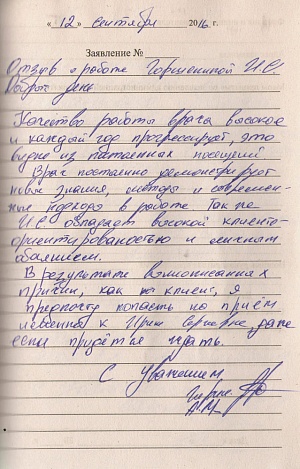 « 12 » сентября 2016 г.
Заявление №
Отзыв о работе Горшениной И.С.
Добрый день
Качество работы врача высокое
и каждый год прогрессирует, это
видно из постоянных посещений
Врач постоянно демонстрирует
новые знания, методы и современ-
ные подходы в работе Также
И.С обладает высокой клиенто-
ориентированостью и личным
обаянием.
В результате вышеописанных
причин, как клиент, я
предпочту попасть на приём
именно к Ирине Сергеевне, даже
если придётся ждать.
С Уважением